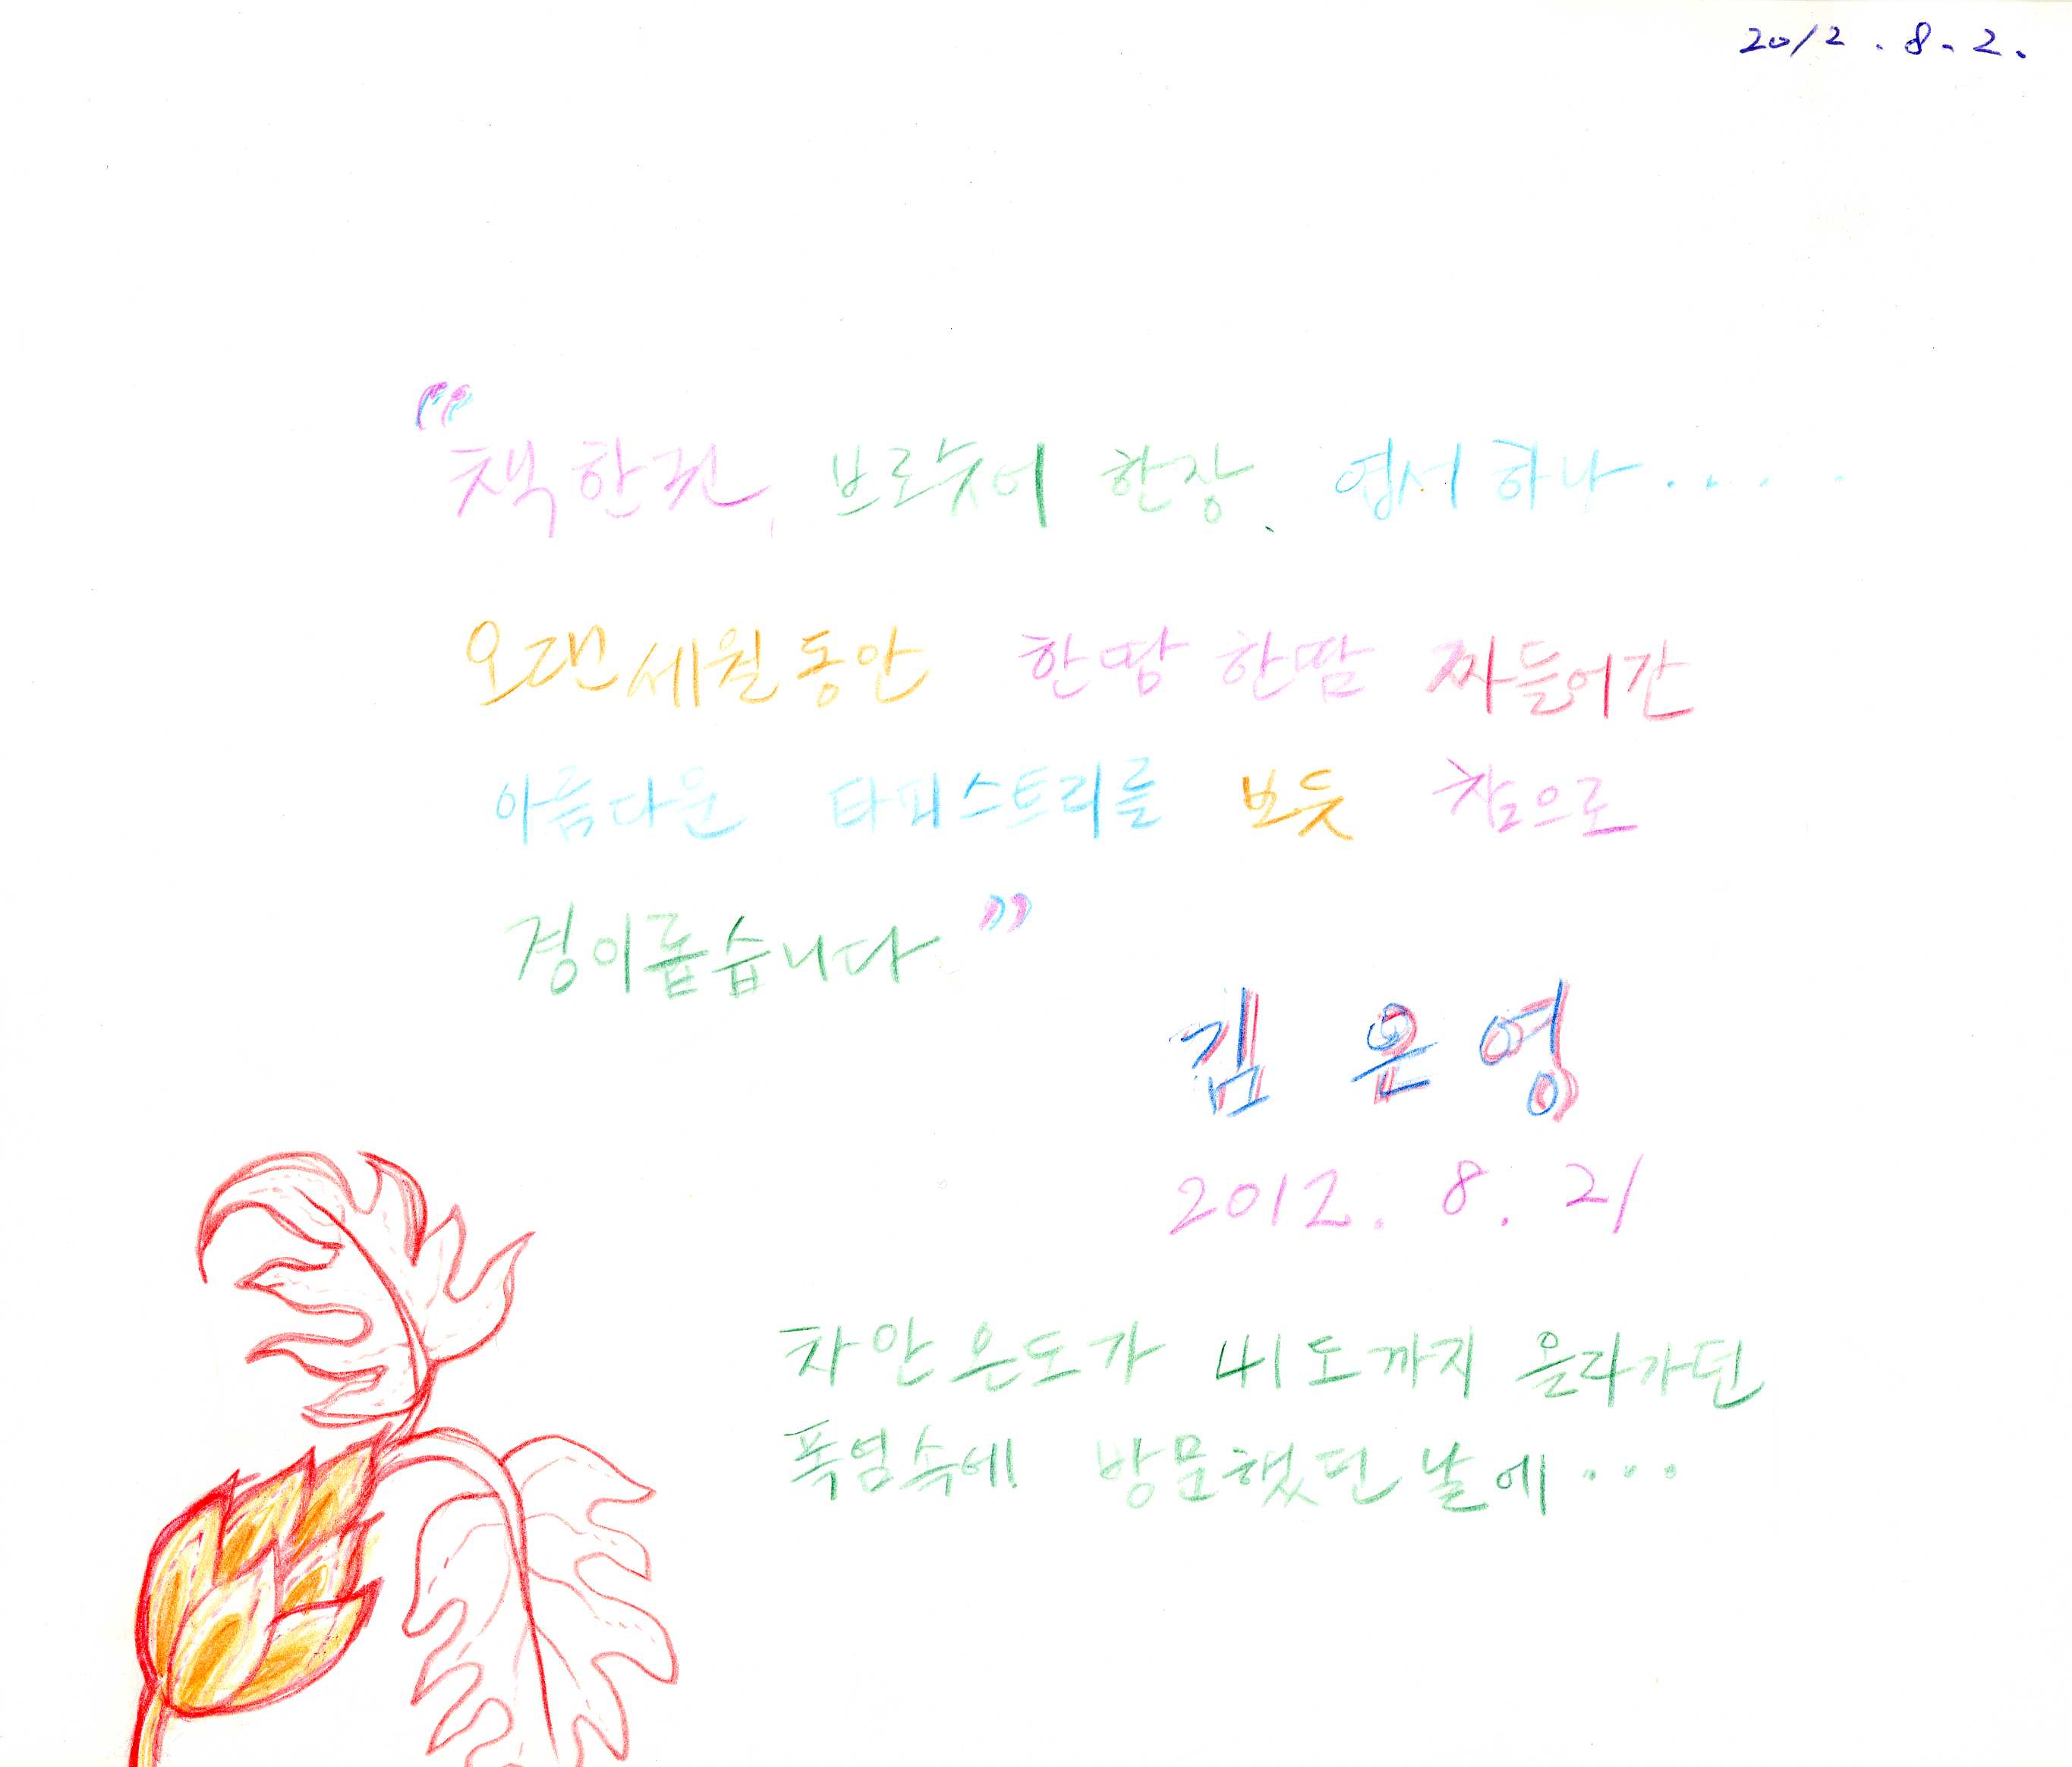 2012.8.2.
"책 한권, 브로슈어 한장, 엽서 하나.....
오랜 세월 동안 한땀 한땀 짜들어간
아름다운 타피스트리를 보듯 참으로
경이롭습니다"
김은영
2012. 8. 21
차안 온도가 41도까지 올라가던
폭염속에 방문했던 날에...